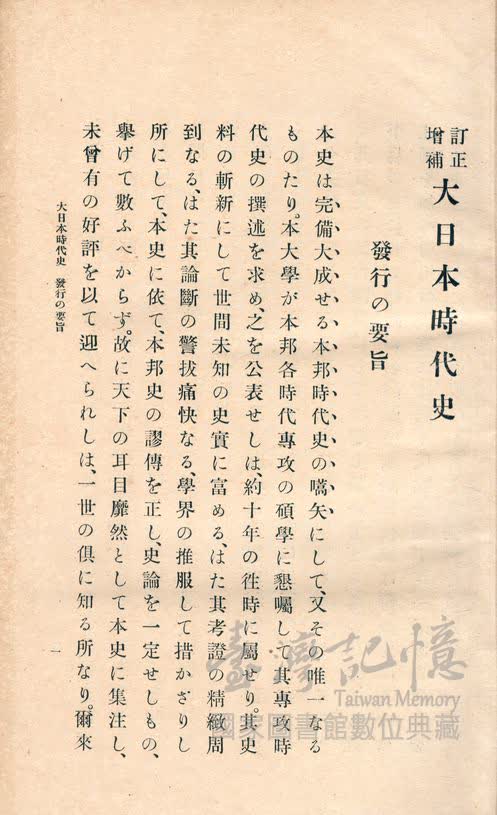 訂正
增補
大日本時代史
發行の要旨
本史は完備大成せる本邦時代史の嚆矢にして、又その唯一なる
ものたり。本大學が本邦各時代專攻の碩學に懇囑して其專攻時
代史の撰述を求め、之を公表せしは、約十年の徃時に屬せり。其史
料の斬新にして世間未知の史實に富める、はた其考證の精緻周
到なる、はた其論斷の警拔痛快なる、學界の推服して措かざりし
所にして、本史に依て、本邦史の謬傳を正し、史論を一定せしもの、
擧げて數ふべからず。故に天下の耳目靡然として本史に集注し、
未曾有の好評を以て迎へられしは、一世の俱に知る所なり。爾來
大日本時代史 發行の要旨
一
臺灣記憶
Taiwan Memory
國家圖書館數位典藏